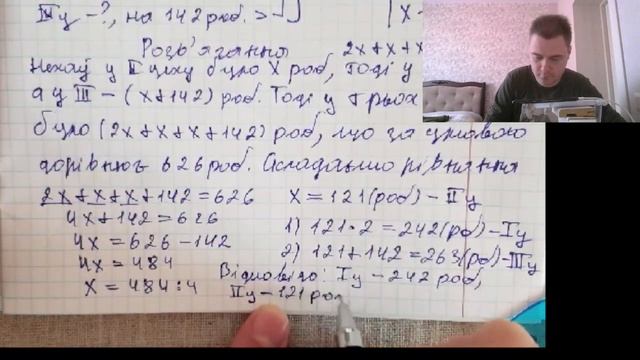 IIIц -?, на 142 роб. >
| X
Розв'язання 2x+x+x
Нехай у II цеху було X роб, тоді у
а у III - (x+142) роб. Тоді у трьох
було (2x+x+x+142) роб, що за умовою
дорівнює 626 роб. Складаємо рівняння
2x+x+x+142=626 X=121(роб)-IIц
4x+142=626 1) 121·2=242(роб)-Iц
4x=626-142 2) 121+142=263(роб)-IIIц
4x=484 Відповідь: Iц-242 роб,
X=484:4 IIц-121 роб